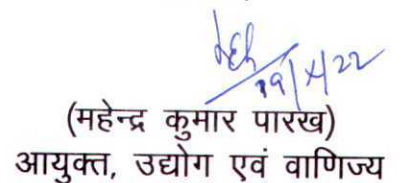 19/X/22
(महेन्द्र कुमार पारख)
आयुक्त, उद्योग एवं वाणिज्य